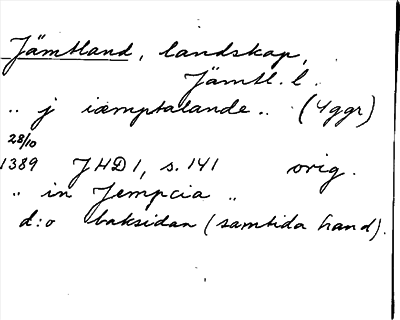 Jämtland, landskap,
Jämtl. l.
.. j iæmptalande .. (4ggr)
28/10
1389 JHD 1, s. 141 orig.
.. in Jempcia ..
d:o baksidan (samtida hand).